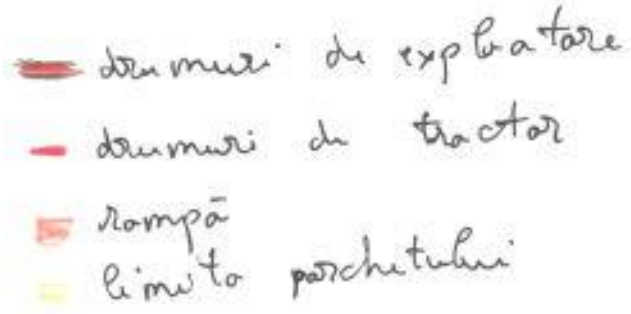 drumuri de exploatare
drumuri de tractor
rampă
limita parchetului